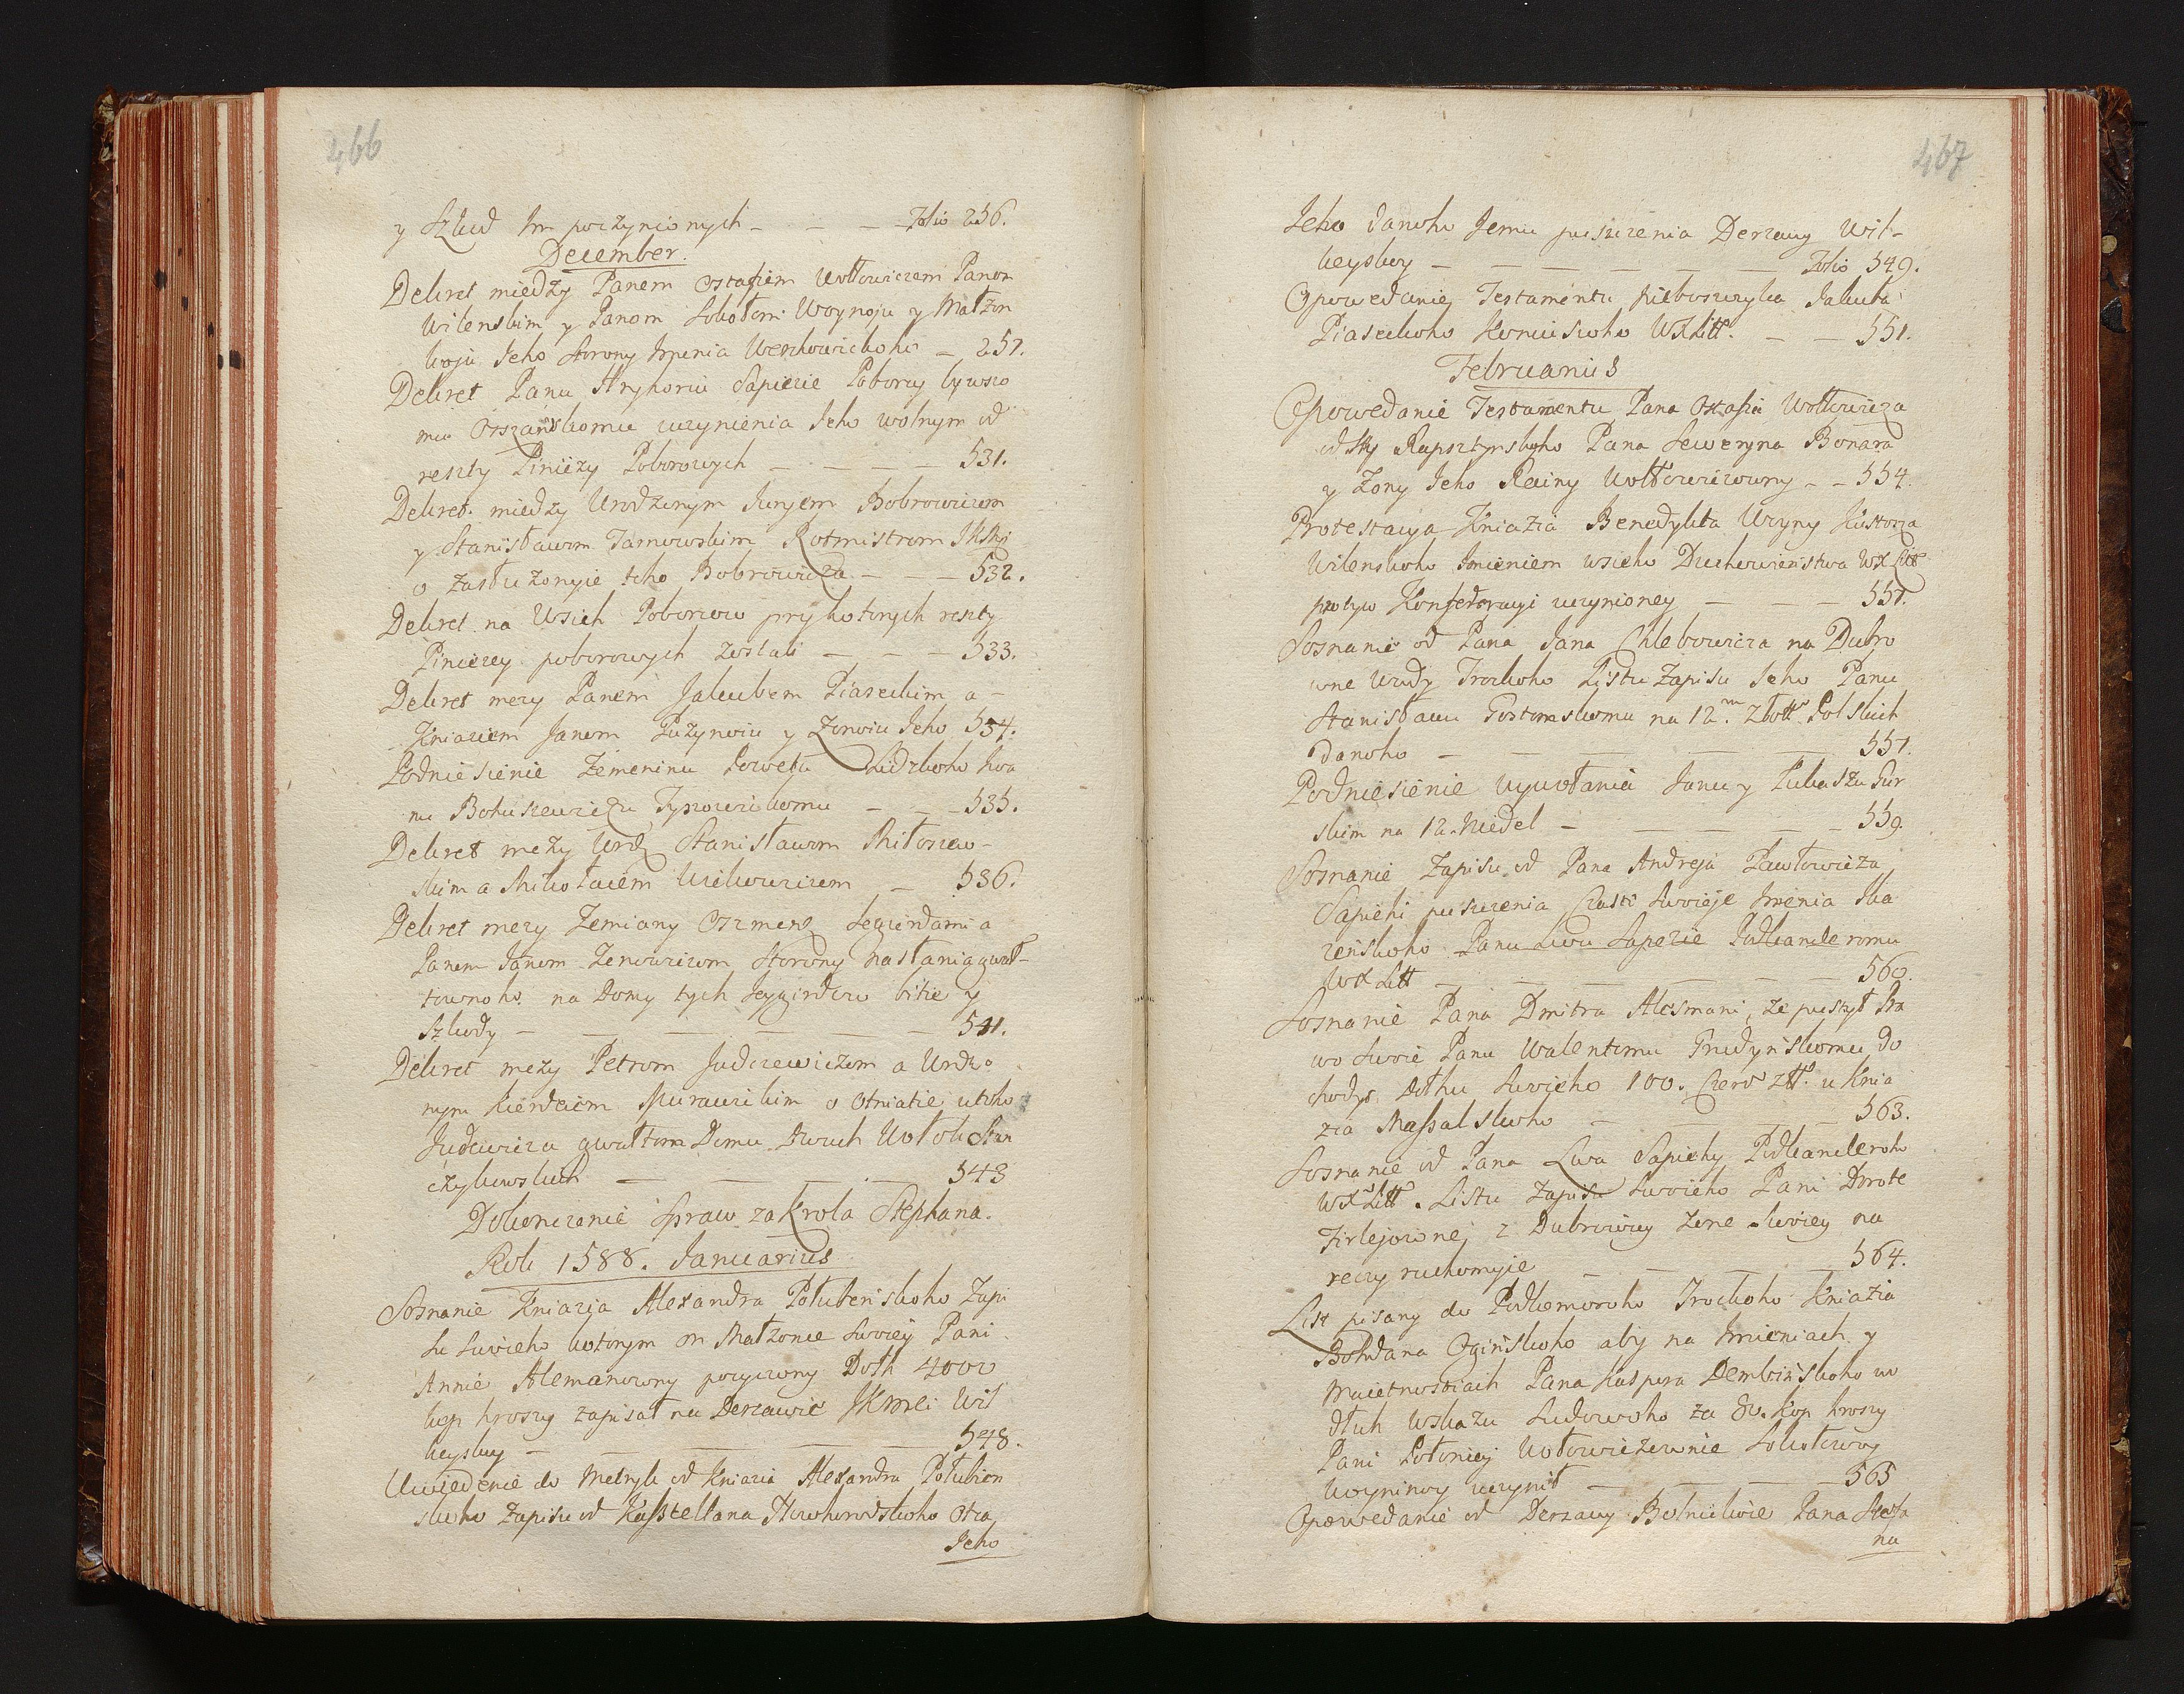 466
y Szkod Im poczynionych — — — Folio 256.
December.
Dekret miedzy Panem Ostafiem Wołłowiczem Panom
Wilenskim y Panom Sokołom Woynoju y Małzon
koju Jeho storony Imenia Werchowickoho — 257.
Dekret Panu Hryhoriu Sapiezie Poborcy bywszo
mu Orszanskomu uczynienia Jeho wolnym od
reszty Piniezy Poborowych — — — — 531.
Dekret miedzy Urodzonym Jurjem Bobrowiczom
y Stanisławom Tarnowskim Rotmistrom JKMsi
o zasłuzonyie Jeho Bobrowicza — — — 532.
Dekret na Wsich Poborcow pry kotorych reszty
Piniezey poborowych zostali — — — 533.
Dekret mezy Panem Jakubem Piaseckim a —
Kniaziem Janom Puzynoiu y Zonoiu Jeho 534.
Podniesienie Zemeninu Powetu Lidzkoho Iwa
nu Bohuszewiczu Tyszowickomu — — 535.
Dekret mezy Urdz Stanisławom Miłoszew-
skim a Mikołaiem Wilkowiczem — 536.
Dekret mezy Zemiany Oszmens Segierdami a
Panem Janom Zenowiczom storony Nasłania gwał-
townoho na Domy tych Seygirdow bitie y
Szkody — — — — — — 541.
Dekret mezy Petrom Judczewiczom a Urdzo
nym Kierdeiem Murawickim o Otniatie utoho
Judewicza gwałtom Domu Dwuch Wołok Stan
czykowskich — — — — 543
Dokonczenie Spraw za Krola Stephana.
Rok 1588. Januarius
Soznanie Kniazia Alexandra Połubenskoho Zapi
su swoieho kotorym on Małzonce swoiey Pani
Annie Alemanowny pozyczony Dołh 4000
kop hroszy zapisał na Derzawie JKMci Wil
keyskoy — — — — — 548.
Uwiedenie do Metryk od Kniazia Alexandra Połubien
skoho Zapisu od Kasstellana Nowhorodskoho Otca
Jeho
467
Jeho danoho Jemu puszczenia Derzawy Wil-
keyskoy — — — — — — Folio 549.
Opowedanie Testamentu nieboszczyka Jakuba
Piaseckoho Koniuszoho WXLitt. — — 551.
Februarius
Opowedanie Testamentu Pana Ostafia Wołłowicza
od Pana Seweryna Bonara
y Zony Jeho Reiny Wołłowiczowny — — 554.
Protestacya Kniazia Benedykta Woyny Kustosza
Wilenskoho Imieniem wsieho Duchowienstwa WX Litt
protyw Konfederacyi uczynioney — — — 557.
Soznanie od Pana Jana Chlebowicza na Dubro
wne Wody Trockoho Listu Zapisu Jeho Panu
Stanisławu Gostomskomu na 12.m Złott. Polskich
danoho — — — — — 557.
Podniesienie wywołania Janu y Łukaszu Gur
skim na 12. Niedel — — — — 559.
Soznanie Zapisu od Pana Andreja Pawłowicza
Sapiehi puszczenia Czasti swoieje Imenia Ika
zenskoho Panu Lwu Sapezie Podkancleromu
WXLitt — — — — 560.
Soznanie Pana Dmitra Alesmani, ze pustył Pra
wo swoie Panu Walentomu Trudynskomu do
chodys. Dołhu swoieho 100. Czerw złł. u Knia
zia Massalskoho — — — — 563.
Soznanie od Pana Lwa Sapiehy Podkancleroho
WXLitt. Listu Zapisu swoieho Pani Dorote
Firlejownej z Dubrowicy Zone swoiey na
reczy ruchomyie — — — — 564.
List pisany do Podkomoroho Trockoho Kniazia
Bohdana Oginskoho aby na Imieniach y
Maietnostiach Pana Kaspera Dembinskoho w
dłuh Wskazu sudowoho za 80. Kop hroszy
Pani Połoniey Wołowiczewnie Sokołowoy
Woyninoy uczynił — — — — 565
Opowedanie od Derzawy Botnickoie Pana Stefa
na